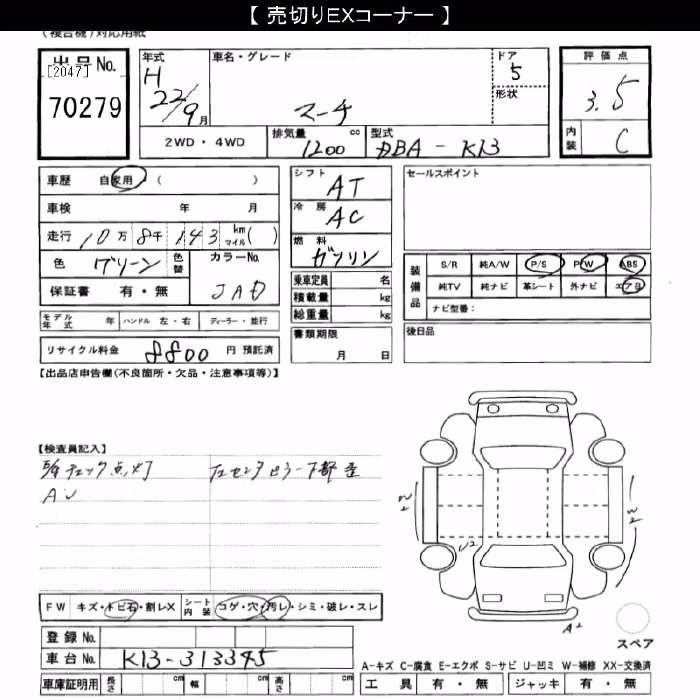 【 売切りEXコーナー 】
(複合機)対応用紙
出品No. [2047] 70279
年式 H 22/9月
車名・グレード マーチ
ドア 5
形状
評価点 3.5
内装 C
2WD・4WD
排気量 1200 cc
型式 DBA - K13
車歴 自家用・( )
車検 年 月
走行 10万8千143 km マイル( )
色 グリーン 色替
カラーNo. JAD
保証書 有・無
シフト AT
冷房 AC
燃料 ガソリン
乗車定員 名
積載量 kg
総重量 kg
セールスポイント
装備品 S/R 純A/W P/S P/W ABS
純TV 純ナビ 革シート 外ナビ エアB
ナビ型番:
モデル年式 年 ハンドル 左・右 ディーラー・並行
書類期限 月 日
後日品
リサイクル料金 8800 円 預託済
【出品店申告欄(不良箇所・欠品・注意事項等)】
【検査員記入】
チェック点灯 左センターピラー下部
AU
W2
W2
U2
A2
FW キズ・トビ石・割レX シート内装 コゲ・穴・汚レ・シミ・破レ・スレ
登録No.
車台No. K13-313345
車庫証明用 長さ cm 幅 cm 高さ cm
スペア
A-キズ C-腐食 E-エクボ S-サビ U-凹ミ W-補修 XX-交換済
工具 有・無 ジャッキ 有・無